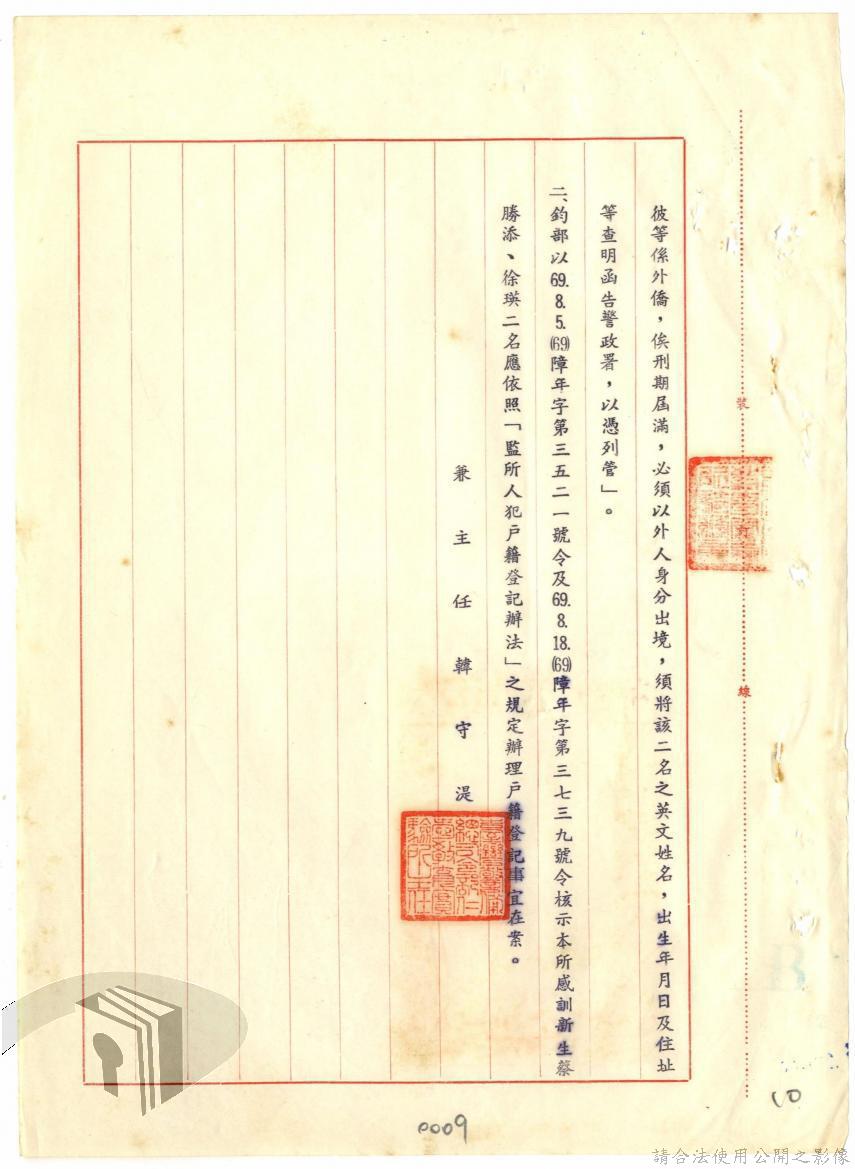 彼等係外僑，俟刑期屆滿，必須以外人身分出境，須將該二名之英文姓名，出生年月日及住址
等查明函告警政署，以憑列管」。
二、鈞部以69.8.5.(69)障年字第三五二一號令及69.8.18.(69)障年字第三七三九號令核示本所感訓新生蔡
勝添、徐瑛二名應依照「監所人犯戶籍登記辦法」之規定辦理戶籍登記事宜在案。
兼主任韓守湜
裝
訂
線
10
0009
請合法使用公開之影像